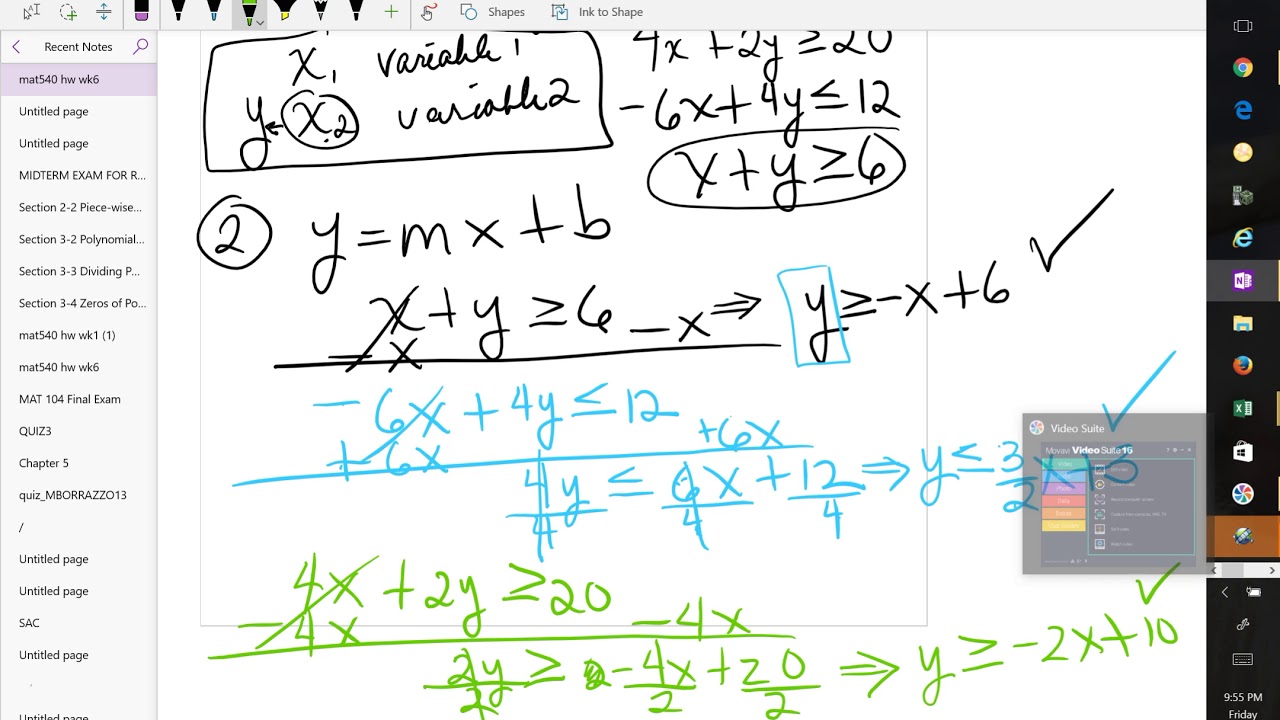 Shapes
Ink to Shape
Recent Notes
mat540 hw wk6
Untitled page
Untitled page
MIDTERM EXAM FOR R...
Section 2-2 Piece-wise...
Section 3-2 Polynomial...
Section 3-3 Dividing P...
Section 3-4 Zeros of Po...
mat540 hw wk1 (1)
mat540 hw wk6
MAT 104 Final Exam
QUIZ3
Chapter 5
quiz_MBORRAZZO13
/
Untitled page
Untitled page
SAC
Untitled page
x₁ variable 1
y ← x₂ variable 2
4x + 2y ≥ 20
-6x + 4y ≤ 12
x + y ≥ 6
② y = mx + b
x + y ≥ 6 - x ⇒ y ≥ -x + 6 ✓
- x
-6x + 4y ≤ 12
+ 6x +6x
4y/4 ≤ 6x/4 + 12/4 ⇒ y ≤ 3/2 x ✓
4x + 2y ≥ 20
-4x -4x
2y/2 ≥ -4x/2 + 20/2 ⇒ y ≥ -2x + 10 ✓
Video Suite
Movavi Video Suite 16
9:55 PM
Friday